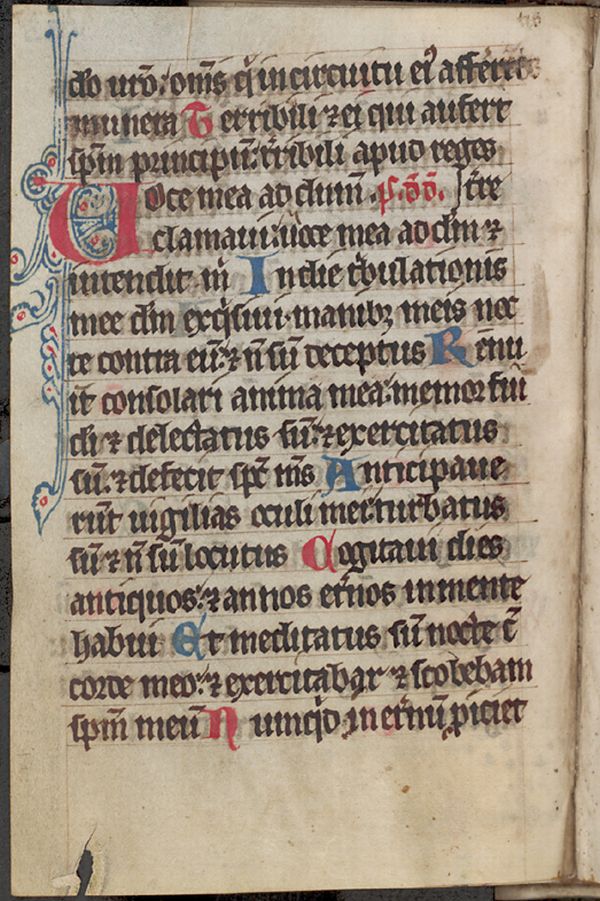 dō urō. om̄s q̇ in circuitu eiꝰ afferēt
munera Terribili ⁊ ei qui aufert
sp̄m principiū: t̄ribili apud reges
Voce mea ad dnm̄. p̄. d̄d̄. ſt̄re
clamaui: uoce mea ad dm̄ ⁊
intendit m̄ In die t̓bulationis
mee dm̄ exq̇siui. manibꝫ meis noc
te contra eū: ⁊ n̄ sū deceptus Renu
it consolari anima mea: memor fui
di ⁊ delectatus sū: ⁊ exercitatus
sū: ⁊ defecit sp̄c m̄s Anticipaue
rūt uigilias oculi mei: turbatus
sū ⁊ n̄ sū locutus Cogitaui dies
antiquos: ⁊ annos et̓nos in mente
habui Et meditatus sū nocte c̄
corde meo: ⁊ exercitabar ⁊ scobebam
sp̄m meū Numq̇d in et̓nū ꝓiciet